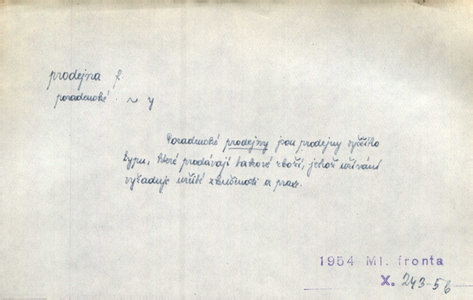 prodejna f.
poradenské ~ y
Poradenské prodejny jsou prodejny vyššího
typu, které prodávají takové zboží, jehož užívání
vyžaduje určité zkušenosti a praxe.
1954 Ml. fronta
X. 243-5 6